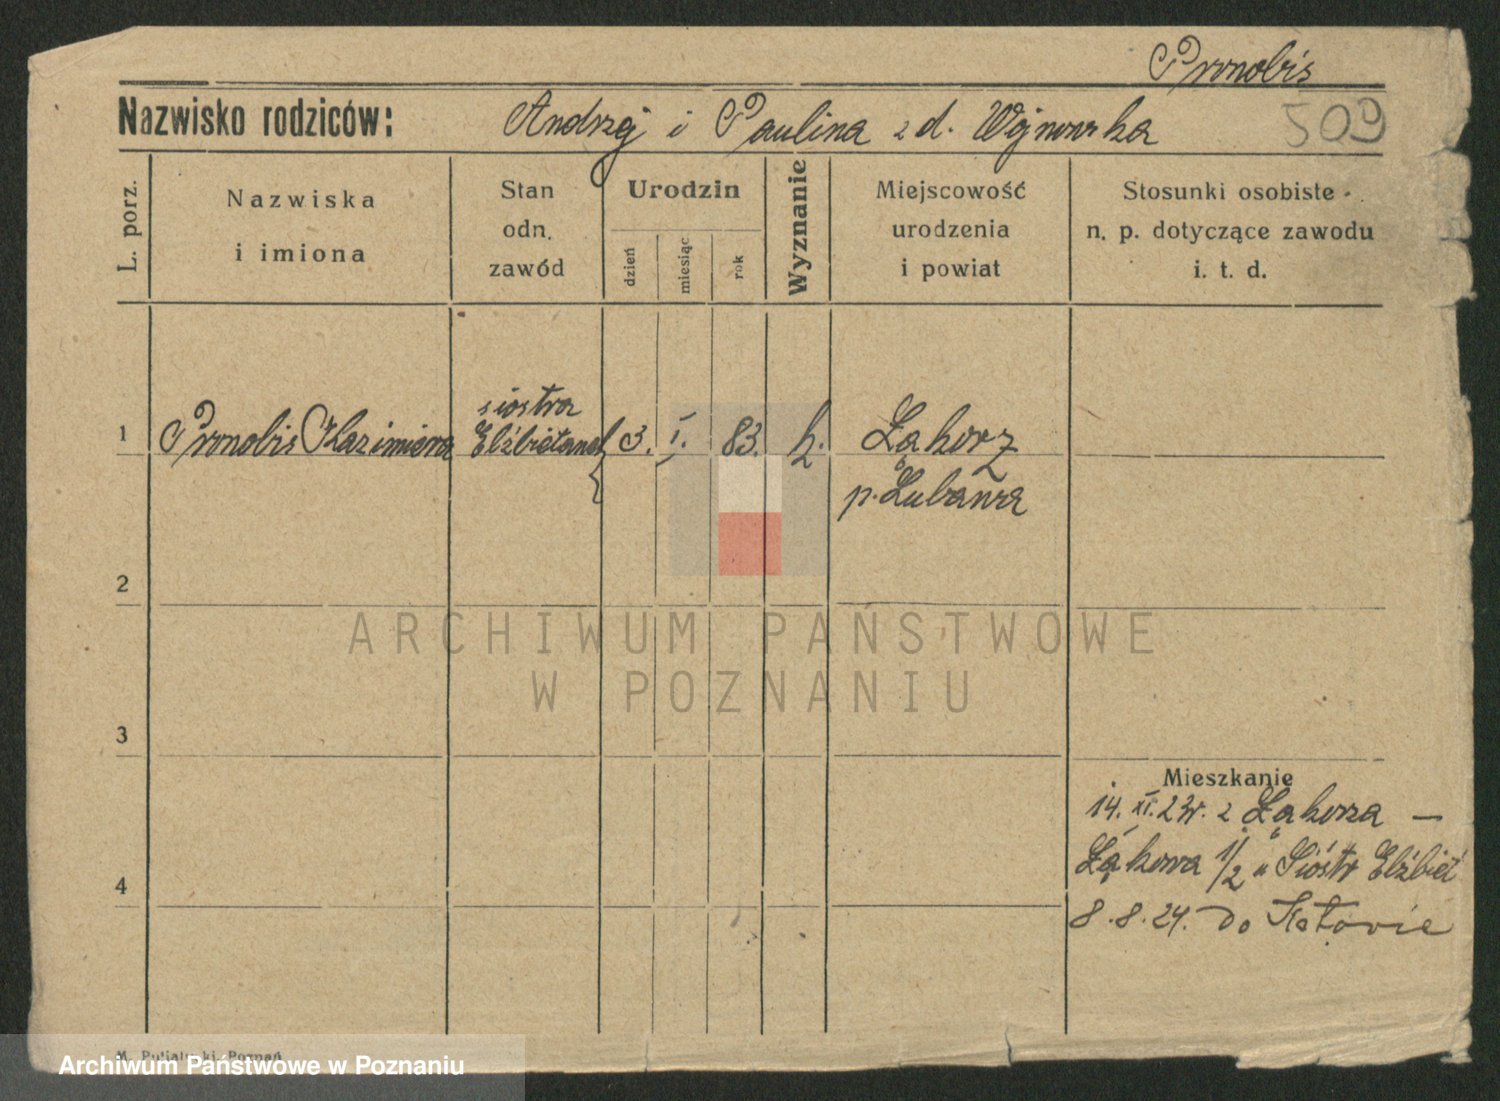 Pronobis
Nazwisko rodziców: Andrzej i Paulina z d. Wojnowska 509
L. porz.
Nazwiska
i imiona
Stan
odn.
zawód
Urodzin
dzień
miesiąc
rok
Wyznanie
Miejscowość
urodzenia
i powiat
Stosunki osobiste
n. p. dotyczące zawodu
i. t. d.
siostra
1 Pronobis Kazimiera Elżbietanek 3. I. 83. k. Łąkorz
p. Lubawa
2
ARCHIWUM PAŃSTWOWE
W POZNANIU
3
Mieszkanie
14. XI. 23r. z Łąkorza —
4 Łąkowa 1/2 u Sióstr Elżbiet
8. 8. 24. do Katowic
M. Putiatycki, Poznań
Archiwum Państwowe w Poznaniu